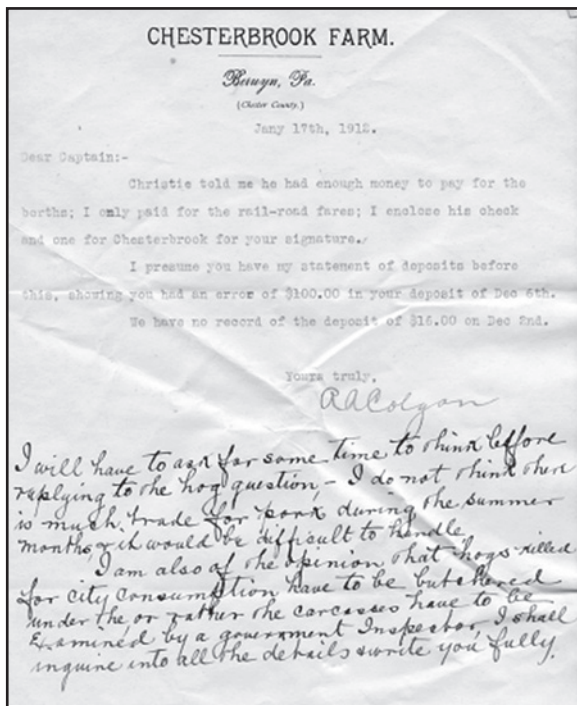 CHESTERBROOK FARM.
Berwyn, Pa.
(Chester County.)
Jany 17th, 1912.
Dear Captain:-
Christie told me he had enough money to pay for the
berths; I only paid for the rail-road fares; I enclose his check
and one for Chesterbrook for your signature.
I presume you have my statement of deposits before
this, showing you had an error of $100.00 in your deposit of Dec 6th.
We have no record of the deposit of $16.00 on Dec 2nd.
Yours truly,
RAColgan
I will have to ask for some time to think beffore
replying to the hog question,- I do not think there
is much trade for pork during the summer
months, & it would be difficult to handle.
I am also of the opinion that hogs killed
for city consumption have to be butchered
under the, or rather the carcasses have to be
examined by a government Inspector, I shall
inquire into all the details & write you fully.